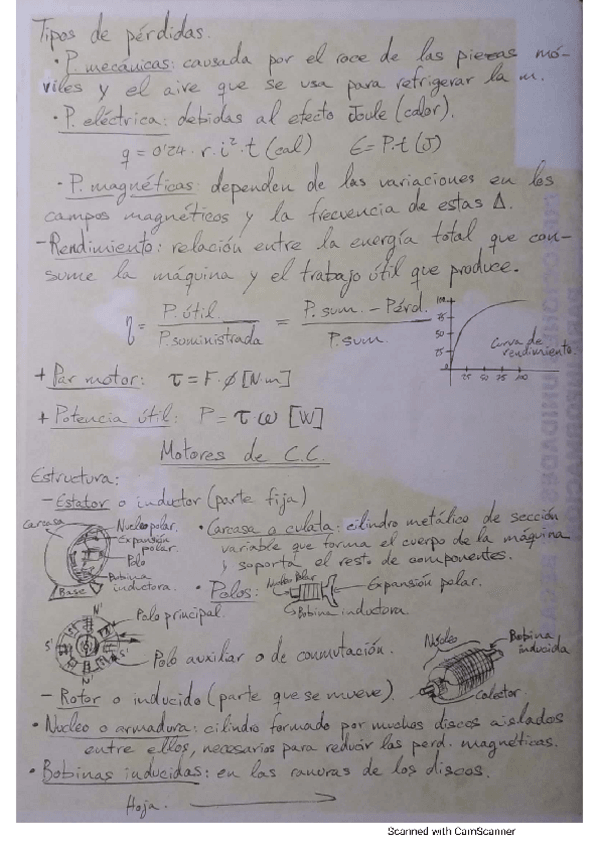 Tipos de pérdidas.
· P. mecánicas: causada por el roce de las piezas mó-
viles y el aire que se usa para refrigerar la m.
· P. eléctrica: debidas al efecto Joule (calor).
q = 0'24 · r · i² · t (cal)   E = P·t (J)
· P. magnéticas: dependen de las variaciones en los
campos magnéticos y la frecuencia de estas Δ.
- Rendimiento: relación entre la energía total que con-
sume la máquina y el trabajo útil que produce.
η = P. útil / P. suministrada = P. sum. - Pérd. / P. sum.
100
75
50
25
25 50 75 100
Curva de
rendimiento.
+ Par motor: τ = F·Ø [N·m]
+ Potencia útil: P = τ·ω [W]
Motores de C.C.
Estructura:
- Estator o inductor (parte fija)
Carcasa
Nucleo polar.
Expansión
polar.
Polo
Bobina
inductora.
Base
· Carcasa o culata: cilindro metálico de sección
variable que forma el cuerpo de la máquina
y soporta el resto de componentes.
· Polos:
Nucleo Polar
Expansión polar.
Bobina inductora.
N'
S'
Polo principal.
Polo auxiliar o de conmutación.
Núcleo
Bobina
inducida
Colector.
- Rotor o inducido (parte que se mueve)
· Nucleo o armadura: cilindro formado por muchos discos aislados
entre ellos, necesarios para reducir las perd. magnéticas.
· Bobinas inducidas: en las ranuras de los discos.
Hoja.
Scanned with CamScanner